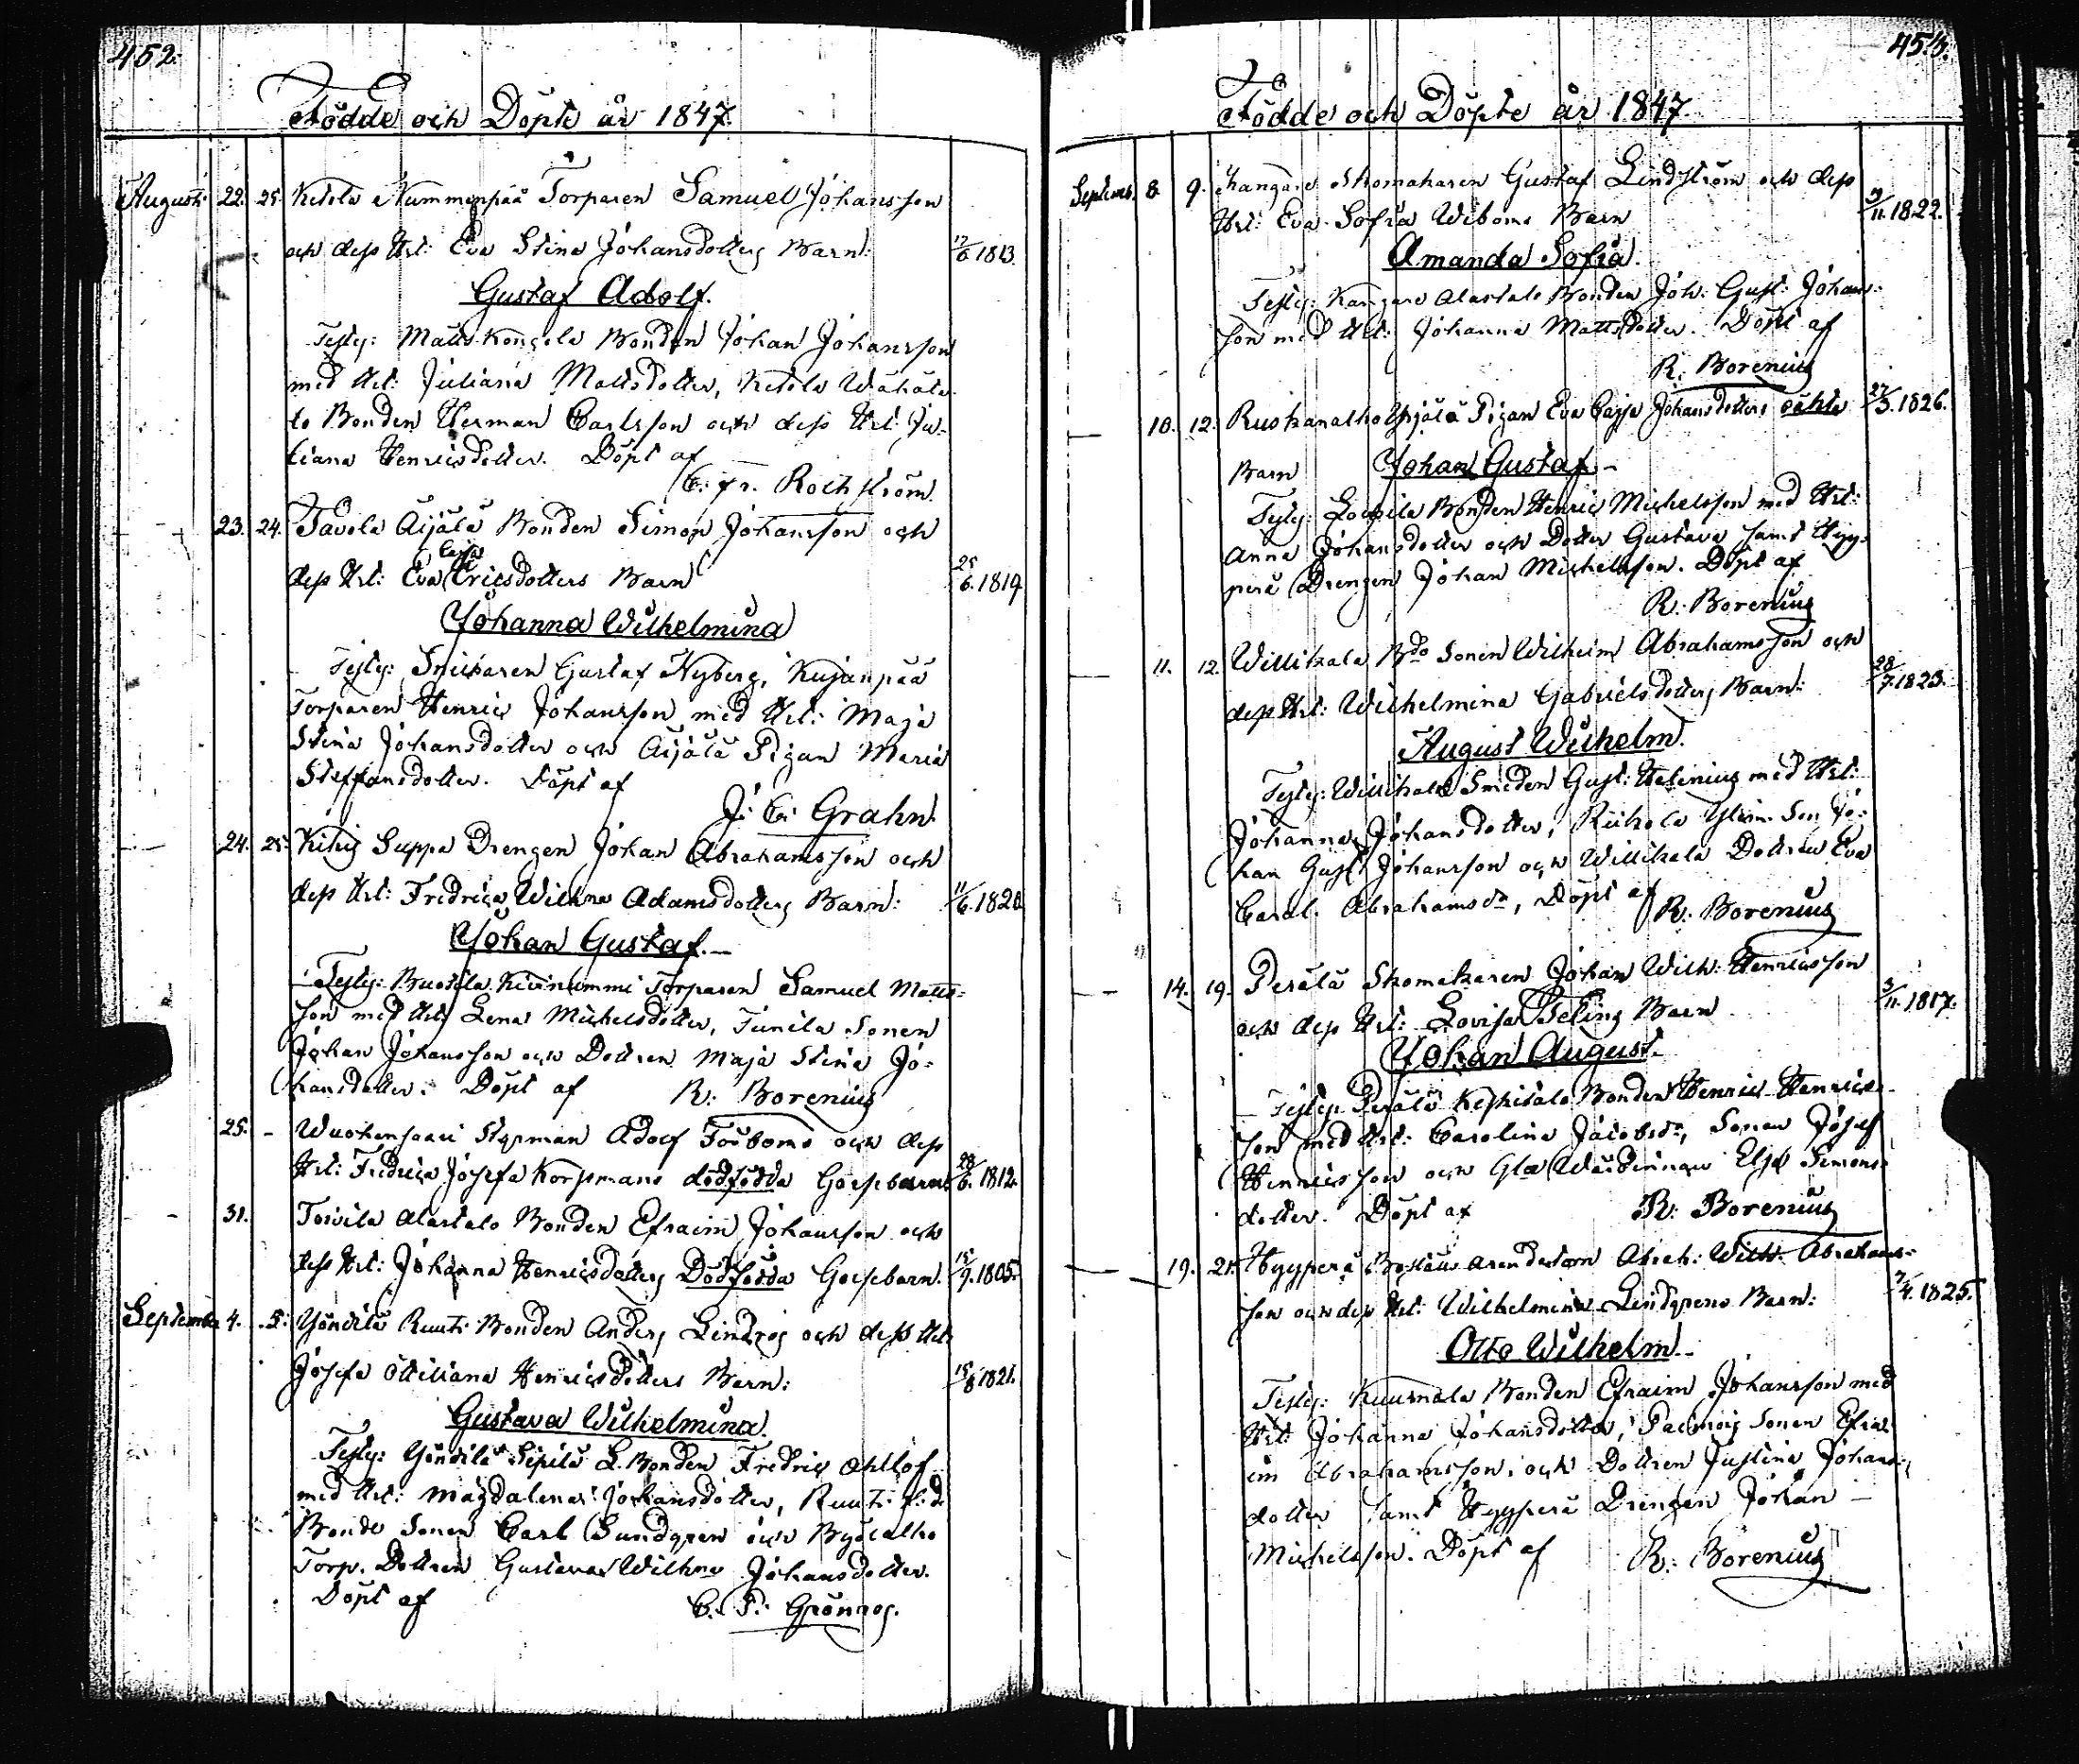 452.
Födde och Döpte år 1847.
Augusti 22. 25. Ketola Nummenpää Torparen Samuel Johansson
och dess Hst: Eva Stina Johansdotters Barn: 17/6 1813.
Gustaf Adolf.
Testes: Matts Bonden Johan Johansson
med Hst: Juliana Mattsdotter, Ketola Wähäta
lo Bonden Herman Carlsson och dess Hst: Ju-
liana Henricsdotter. Döpt af
Rothström.
23. 24. Tavola Äijälä Bonden Simon Johansson och
Cajsa
dess Hst: Eva Ericsdotters Barn 25/6. 1819.
Johanna Wilhelmina
Testes: Snickaren Gustaf Nyberg, Kujanpää
Torparen Henric Johansson med Hst: Maja
Stina Johansdotter och Äijälä Pigan Maria
Steffansdotter. Döpt af
Grahn.
24. 25. Seppä Drengen Johan Abrahamsson och
dess Hst: Fredrica Wilhna Adamsdotters Barn: 11/6. 1820.
Johan Gustaf.
Testes: Kivinummi Torparen Samuel Matts-
son med Hst: Lena Michelsdotter, Junila Sonen
Johan Johansson och Dottren Maja Stina Jo-
hansdotter. Döpt af R. Borenius
25. - Styrman Adolf och dess
Hst: Fredrica Josefa Korsmans dödfödda Gossebarn: 28/6. 1812.
31. Toivila Alastalo Bonden Efraim Johansson och
dess Hst: Johanna Henricsdotters Dödfödda Gossebarn. 15/9. 1805.
September 4. 5. Ruuti Bonden Anders Lindros och dess Hst:
Josefa Ottiliana Henricsdotters Barn: 15/8 1821.
Gustava Wilhelmina.
Testes: Sipilä L. Bonden Fredric Ahllöf
med Hst: Magdalena Johansdotter, Ruuti f:d
Bonde Sonen Carl Sundgren och
Torp. Dottren Gustava Wilhna Johansdotter.
Döpt af C. P. Grönroos.
453.
Födde och Döpte år 1847.
Septemb. 8. 9. Kangare Skomakaren Gustaf Lindström och dess
Hst: Eva Sofia Wiboms Barn 9/11. 1822.
Amanda Sofia.
Testes: Kangare Alastalo Bonden Joh: Gust: Johans-
son med Hst: Johanna Mattsdotter. Döpt af
R. Borenius
10. 12. Pigan Eva Cajsa Johansdotters oäkta 27/3. 1826.
Barn Johan Gustaf -
Testes: Bonden Henric Michelsson med Hst:
Anna Johansdotter och Dotter Gustava samt Hyy-
perä Drengen Johan Michelsson. Döpt af
R. Borenius
11. 12. Willikala Bdo Sonen Wilhelm Abrahamsson och
dess Hst: Wilhelmina Gabrielsdotters Barn: 28/7. 1823.
August Wilhelm.
Testes: Willikala Smeden Gust: Helenius med Hst:
Johanna Johansdotter, Son Jo-
han Gust Johansson och Willikala Dottren Eva
Carol. Abrahamsdr, Döpt af R. Borenius
14. 19. Perälä Skomakaren Johan Wilh: Henricsson
och dess Hst: Lovisa Barn 3/11. 1817.
Johan August.
Testes: Perälä Keskitalo Bonden Henric Henrics-
son med Hst: Carolina Jacobsdr, Sonen Josef
Henricsson och Elsa Simons-
dotter. Döpt af R. Borenius
19. 21. Hyyperä Abrah: Wilh. Abrahams-
son och dess Hst: Wilhelmina Lindgrens Barn: 7/4. 1825.
Otto Wilhelm -
Testes: Kuusmala Bonden Efraim Johansson med
Hst: Johanna Johansdotter, Sonen Efra-
im Abrahamsson, och Dottren Justina Johans-
dotter samt Hyyperä Drengen Johan -
Michelsson. Döpt af R. Borenius